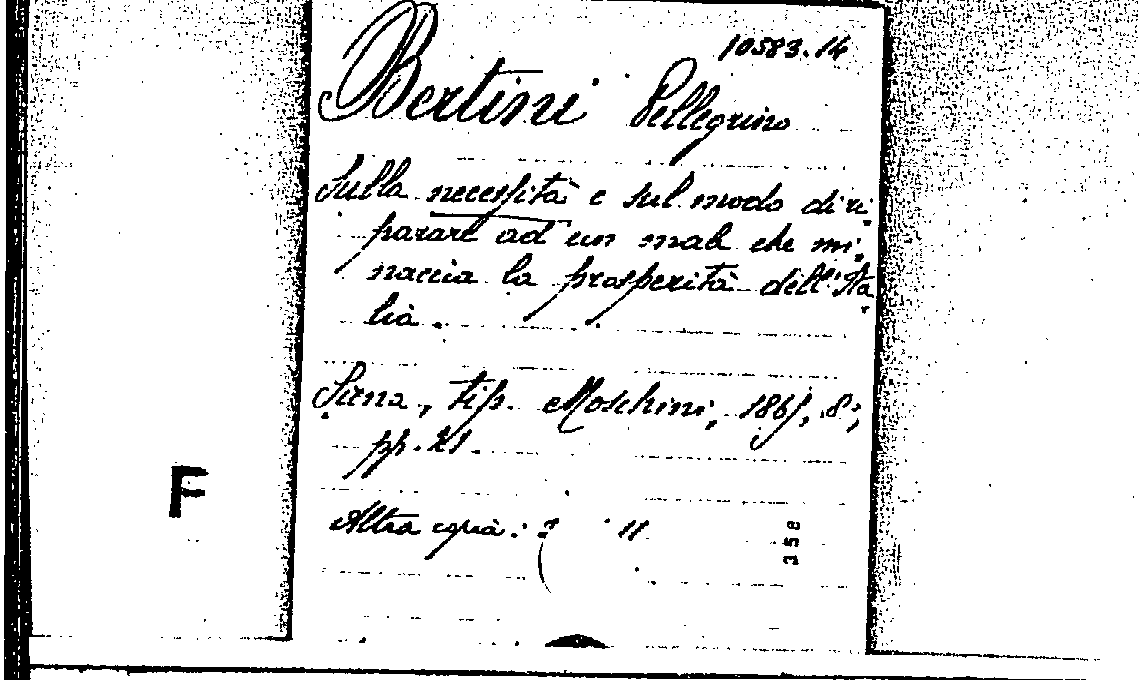 10583.14
Bertini Pellegrino
Sulla necessità e sul modo di ri-
parare ad un male che mi-
naccia la prosperità dell'Ita-
lia.
Siena, tip. Moschini, 186, 8°,
pp. 21.
F
Altra copia: 11
358